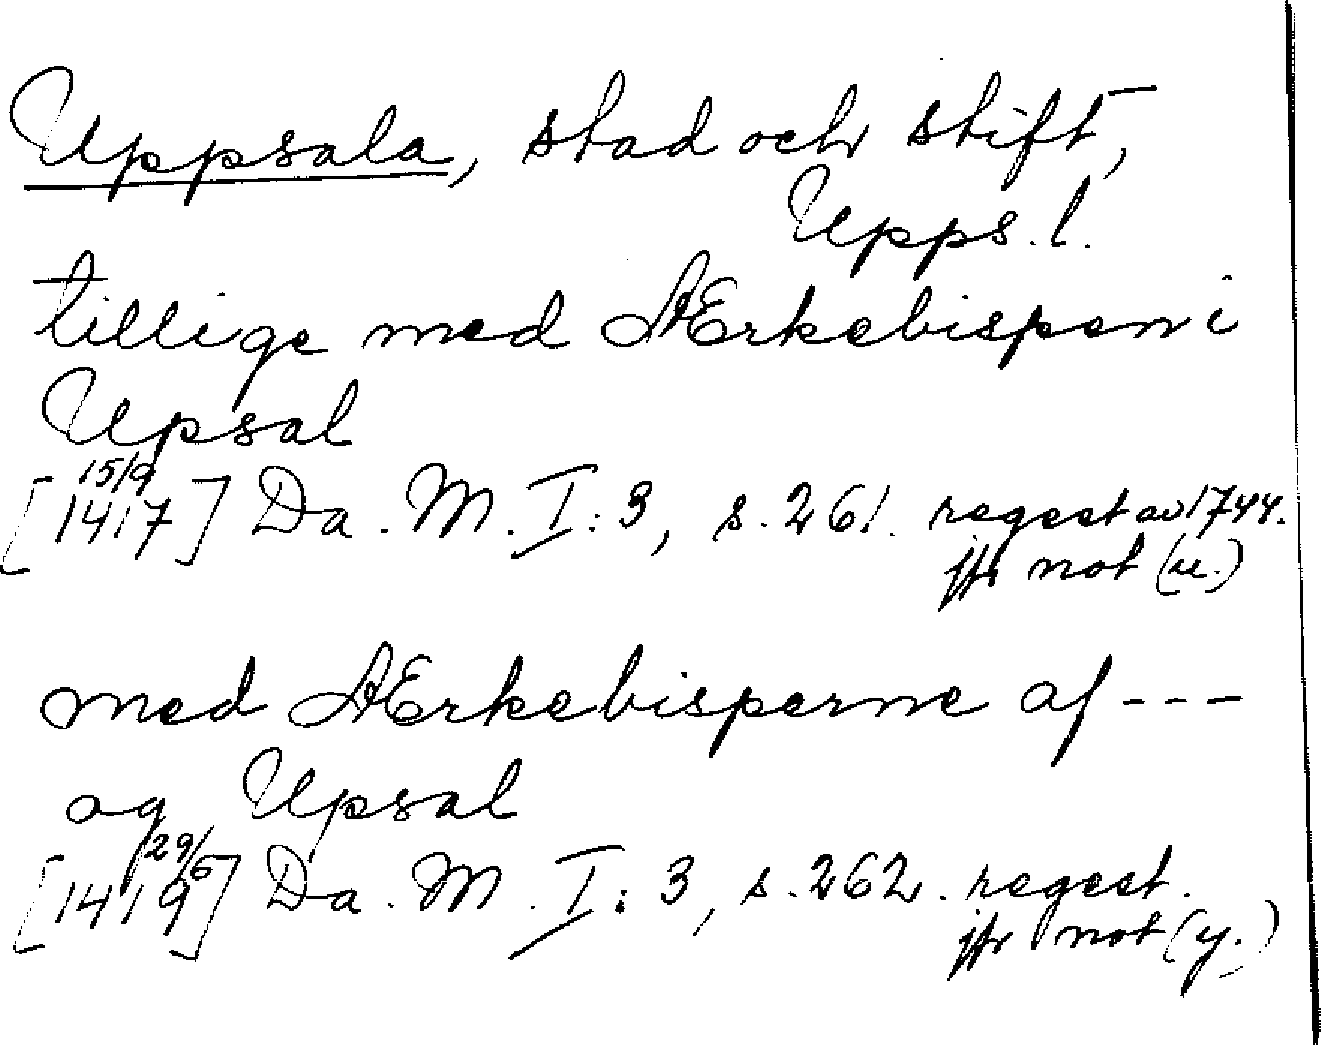 Uppsala, stad och stift,
Upps. l.
tillige med Ærkebispen i
Upsal
[15/9 1417] Da. M. I: 3, s. 261. regest av 1744.
jfr not (u.)
med Ærkebisperne af ---
og Upsal
[29/6 1419] Da. M. I: 3, s. 262. regest.
jfr not (y.)